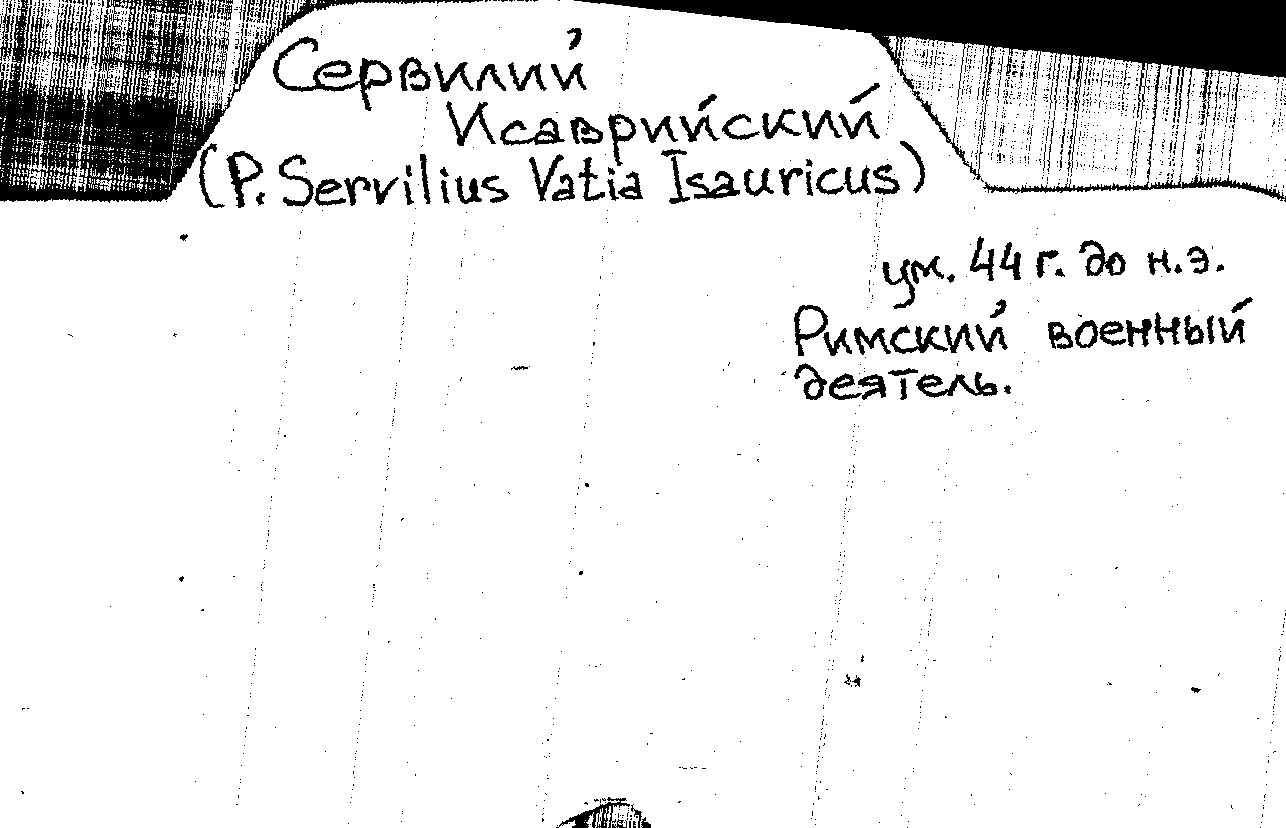 Сервилий
Исаврийский
(P. Servilius Vatia Isauricus)
ум. 44 г. до н.э.
Римский военный
деятель.